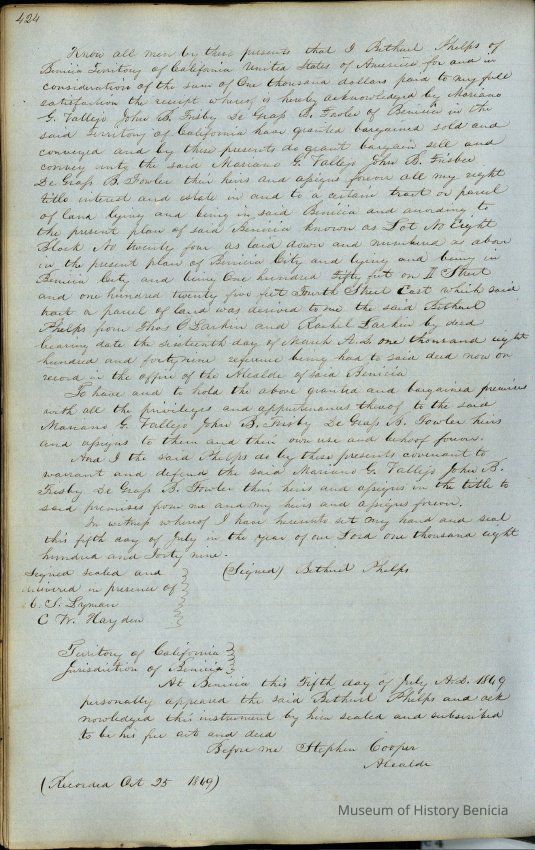 424
Know all men by these presents that I Bethuel Phelps of
Benicia Territory of California United States of America for and in
consideration of the sum of One thousand dollars paid to my full
satisfaction the receipt whereof is hereby acknowledged by Mariano
G. Vallejo John B. Frisby De Grass B. Fowler of Benicia in the
said Territory of California have granted bargained sold and
conveyed and by these presents do grant bargain sell and
convey unto the said Mariano G. Vallejo John B. Frisbee
De Grass B. Fowler their heirs and assigns forever all my right
title interest and estate in and to a certain tract or parcel
of land lying and being in said Benicia and according to
the present plan of said Benicia known as Lot No Eight
Block No twenty four as laid down and numbered as above
in the present plan of Benicia City and lying and being in
Benicia City and being One hundred fifty feet on I Street
and one hundred twenty five feet Fourth Street East which said
tract a parcel of land was derived to me the said Bethuel
Phelps from Thos O Larkin and Rachel Larkin by deed
bearing date the sixteenth day of March A.D. one thousand eight
hundred and forty nine reference being had to said deed now on
record in the office of the Alcalde of said Benicia
To have and to hold the above granted and bargained premises
with all the privileges and appurtenances thereof to the said
Mariano G. Vallejo John B. Frisby De Grass B. Fowler heirs
and assigns to them and their own use and behoof forever.
And I the said Phelps do by these presents covenant to
warrant and defend the said Mariano G. Vallejo John B.
Frisby De Grass B. Fowler their heirs and assigns in the title to
said premises from me and my heirs and assigns forever.
In witness whereof I have hereunto set my hand and seal
this fifth day of July in the year of our Lord one thousand eight
hundred and forty nine.
Signed sealed and (Signed) Bethuel Phelps
delivered in presence of
C. S. Lyman
C W. Hayden
Territory of California
Jurisdiction of Benicia
At Benicia this Fifth day of July A.D. 1849
personally appeared the said Bethuel Phelps and ack
nowledged this instrument by him sealed and subscribed
to be his free act and deed
Before me Stephen Cooper
Alcalde
(Recorded Oct 25 1849)
Museum of History Benicia